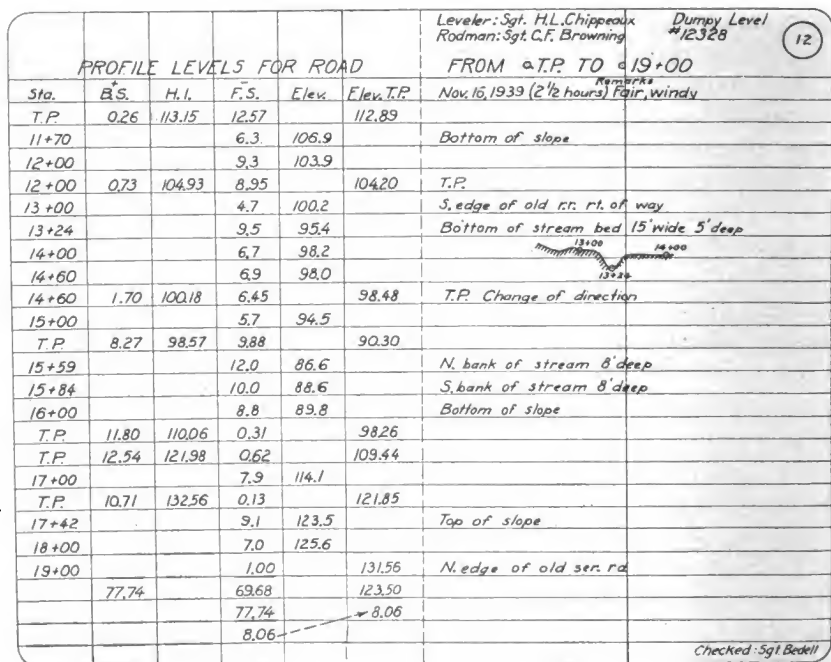 Leveler: Sgt. H.L. Chippeaux Dumpy Level
Rodman: Sgt. C.F. Browning #12328 12
PROFILE LEVELS FOR ROAD FROM a T.P. TO a 19+00
Remarks
Sta. B.S. H.I. F.S. Elev. Elev. T.P. Nov. 16, 1939 (2 1/2 hours) Fair, windy
+ -
T.P. 0.26 113.15 12.57 112.89
11+70 6.3 106.9 Bottom of slope
12+00 9.3 103.9
12+00 0.73 104.93 8.95 104.20 T.P.
13+00 4.7 100.2 S. edge of old r.r. rt. of way
13+24 9.5 95.4 Bottom of stream bed 15' wide 5' deep
14+00 6.7 98.2 13+00 14+00
14+60 6.9 98.0 13+24
14+60 1.70 100.18 6.45 98.48 T.P. Change of direction
15+00 5.7 94.5
T.P. 8.27 98.57 9.88 90.30
15+59 12.0 86.6 N. bank of stream 8' deep
15+84 10.0 88.6 S. bank of stream 8' deep
16+00 8.8 89.8 Bottom of slope
T.P. 11.80 110.06 0.31 98.26
T.P. 12.54 121.98 0.62 109.44
17+00 7.9 114.1
T.P. 10.71 132.56 0.13 121.85
17+42 9.1 123.5 Top of slope
18+00 7.0 125.6
19+00 1.00 131.56 N. edge of old ser. rd
77.74 69.68 123.50
77.74 8.06
8.06
Checked: Sgt. Bedell